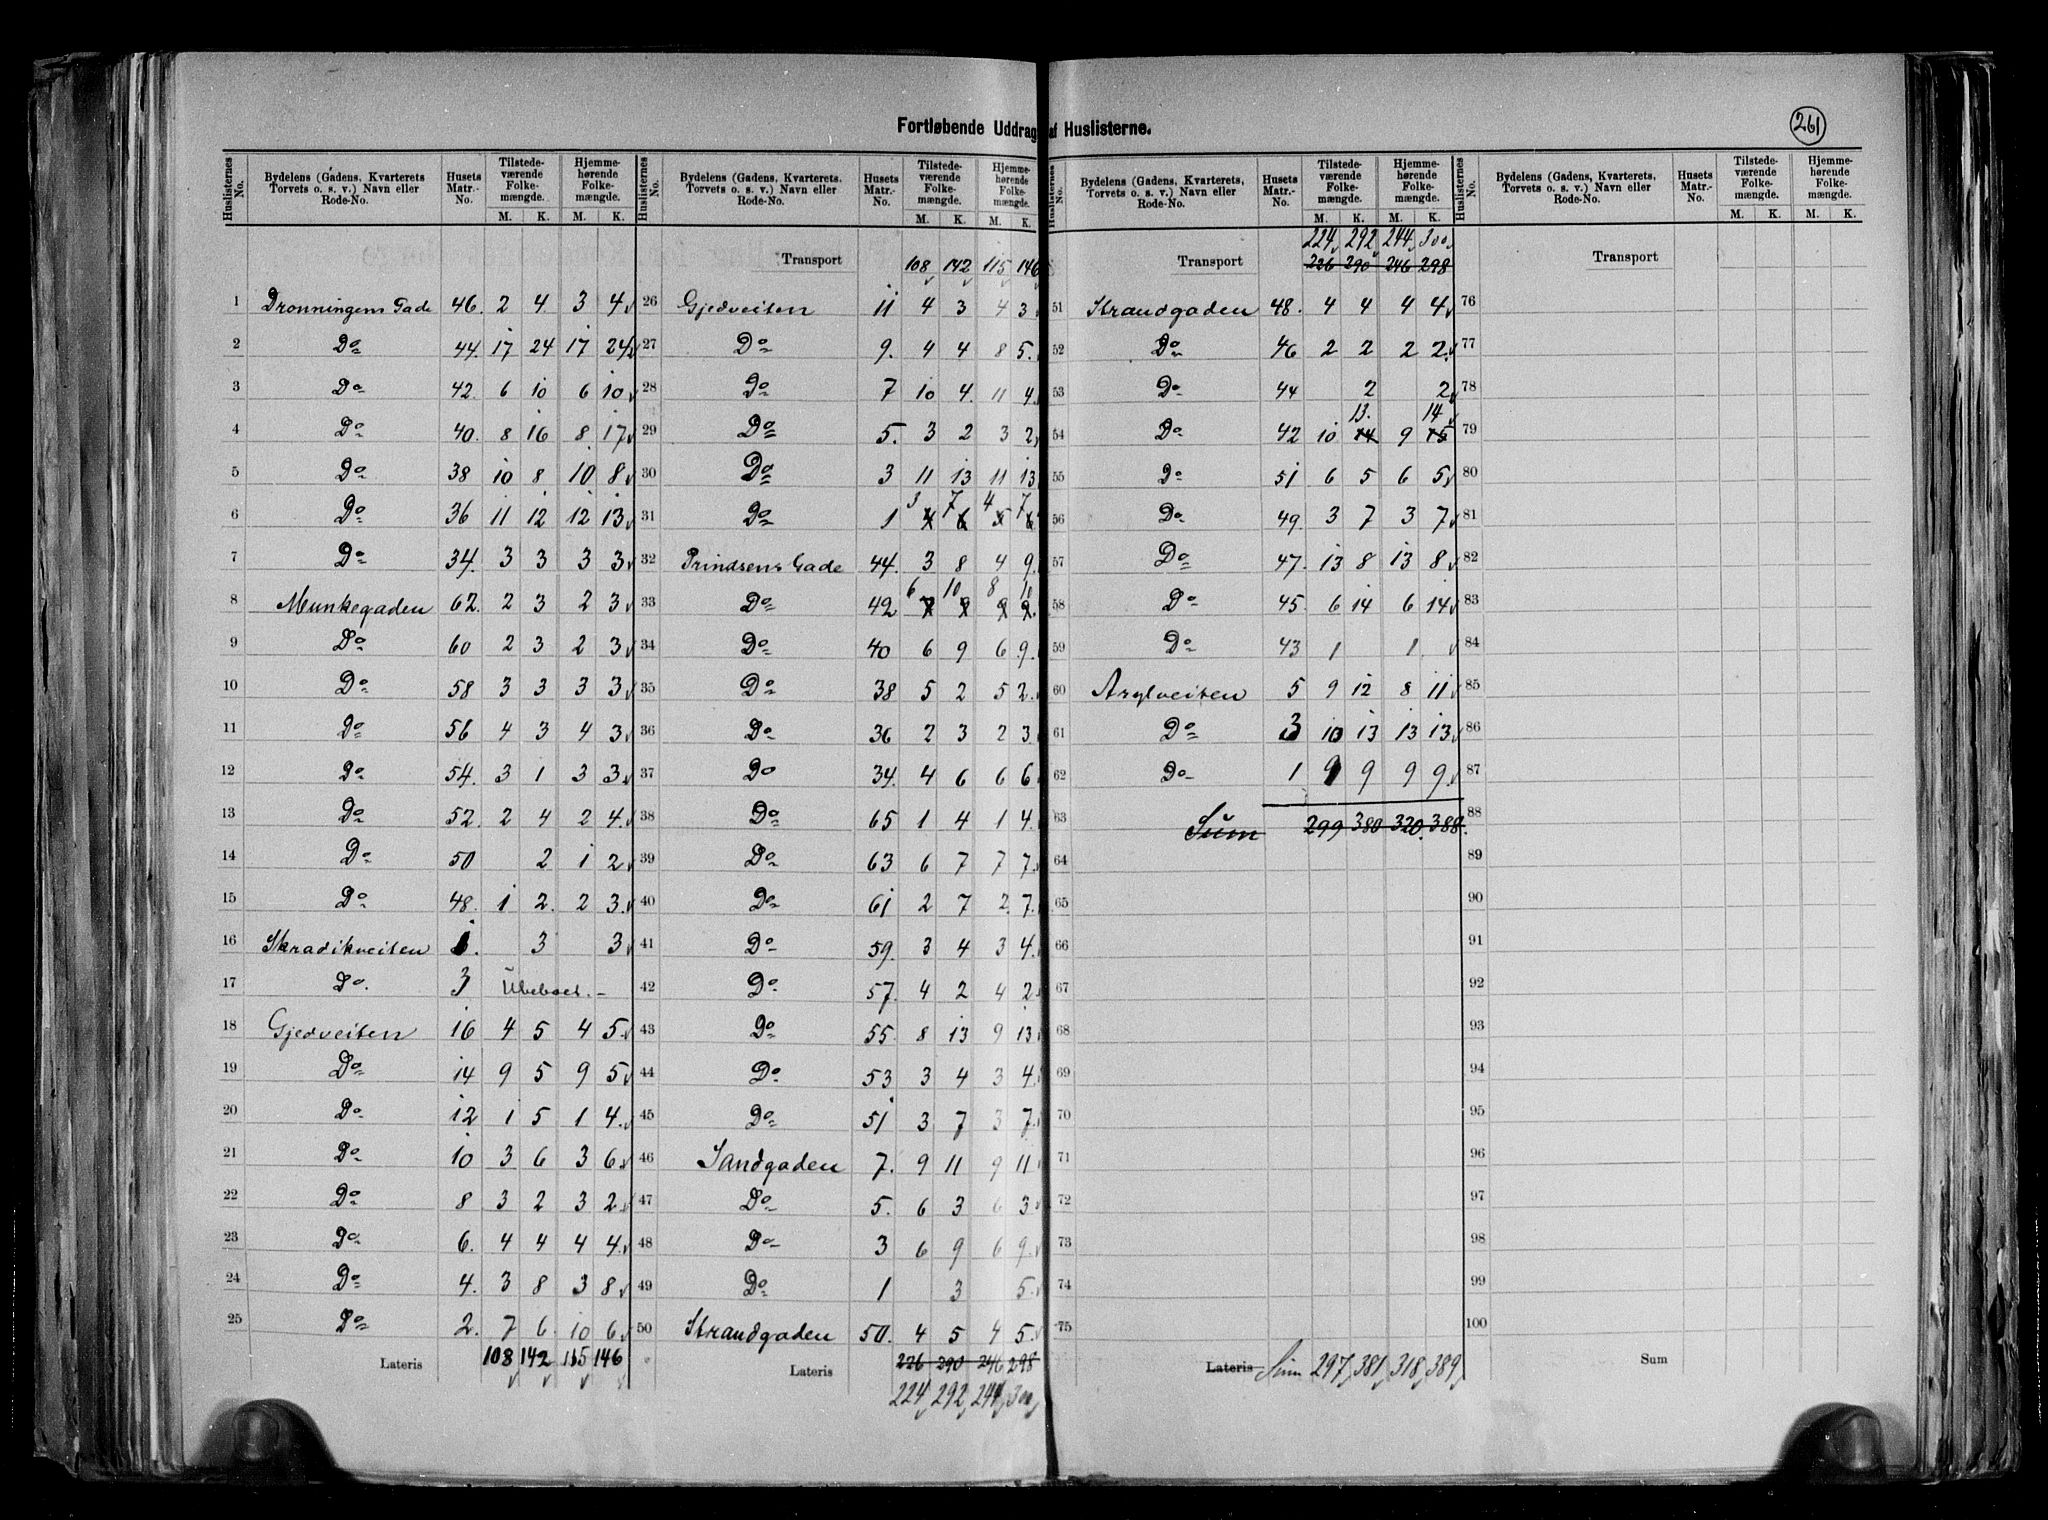 Fortløbende Uddrag af Huslisterne.
261
Huslisternes No. Bydelens (Gadens, Kvarterets Torvets o. s. v.) Navn eller Rode-No. Husets Matr.-No. Tilstedeværende Folkemængde. M. K. Hjemmehørende Folkemængde. M. K.
1 Dronningens Gade 46. 2 4 3 4
2 Do 44. 17 24 17 24
3 Do 42. 6 10 6 10
4 Do 40. 8 16 8. 17
5 Do 38 10 8 10 8
6 Do 36 11 12 12 13
7 Do 34. 3 3 3 3
8 Munkegaden 62. 2 3 2 3
9 Do 60 2 3 2 3
10 Do 58 3 3 3 3
11 Do 56 4 3 4 3
12 Do 54. 3 1 3 3
13 Do 52. 2 4 2 4.
14 Do 50 2 1 2
15 Do 48. 1 2. 2 3.
16 Skradikveiten 1. 3 3
17 Do. 3 Ubeboet. -
18 Gjedveiten 16 4 5 4 5
19 Do 14 9 5 9 5
20 Do 12 1 5 1 4.
21 Do 10 3 6 3 6
22 Do 8 3 2 3 2
23 Do 6. 4 4 4 4
24 Do 4. 3 8 3 8
25 Do 2. 7 6 10 6
Lateris 108 142 115 146
Huslisternes No. Bydelens (Gadens, Kvarterets, Torvets o. s. v.) Navn eller Rode-No. Husets Matr.-No. Tilstedeværende Folkemængde. M. K. Hjemmehørende Folkemængde. M. K.
Transport 108 142 115 146
26 Gjedveiten 11 4 3 4 3
27 Do 9. 4 4 8 5.
28 Do 7 10 4. 11 4
29 Do 5. 3 2 3 2
30 Do 3 11 13 11 13
3 7 4 7
31 Do 1 4 6 5 6
32 Prindsens Gade 44. 3 8 4 9.
6 10 8 10
33 Do 42 7 9 9 9
34 Do 40 6 9 6 9.
35 Do 38 5 2 5 2.
36 Do 36 2 3 2 3
37 Do 34. 4 6 6 6
38 Do 65 1 4 1 4.
39 Do 63 6 7 7 7
40 Do 61 2 7 2. 7.
41 Do 59. 3 4 3 4.
42 Do 57. 4 2 4 2
43 Do 55. 8 13 9 13
44 Do. 53 3 4 3 4.
45 Do 51 3 7 3 7.
46 Sandgaden 7. 9 11 9 11
47 Do 5. 6 3 6 3
48 Do 3 6 9 6 9.
49 Do 1 3 5.
50 Strandgaden 50. 4 5 4 5
Lateris 226 290 246 298
224 292 244 300
Huslisternes No. Bydelens (Gadens, Kvarterets, Torvets o. s. v.) Navn eller Rode-No. Husets Matr.-No. Tilstedeværende Folkemængde. M. K. Hjemmehørende Folkemængde. M. K.
224 292 244 300
Transport 226 290 246 298
51 Strandgaden 48. 4 4 4 4
52 Do 46 2 2 2 2.
53 Do 44 2 2
13. 14
54 Do 42 10 14 9 15
55 Do 51 6 5 6 5
56 Do 49. 3 7 3 7
57 Do 47. 13 8 13 8
58 Do 45. 6 14 6 14
59 Do 43 1 1.
60 Arylveiten 5 9 12 8 11
61 Do 3 10 13 13 13
62 Do 1 9 9 9 9
63 Sum 299 380 320. 388.
64
65
66
67
68
69
70
71
72
73
74
75
Lateris Sum 297 381 318 389
Huslisternes No. Bydelens (Gadens, Kvarterets, Torvets o. s. v.) Navn eller Rode-No. Husets Matr.-No. Tilstedeværende Folkemængde. M. K. Hjemmehørende Folkemængde. M. K.
Transport
76
77
78
79
80
81
82
83
84
85
86
87
88
89
90
91
92
93
94
95
96
97
98
99
100
Sum